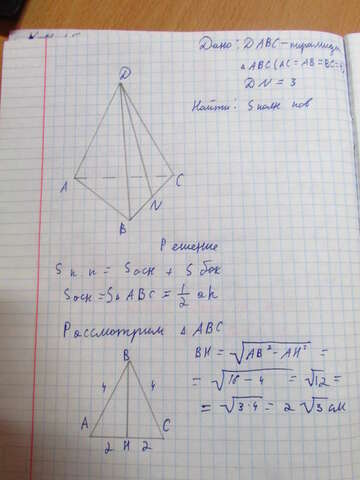 Дано: DABC - пирамида
△ABC (AC = AB = BC = 4)
DN = 3
Найти: S полн пов
D
A
C
N
B
Решение
S п п = S осн + S бок
S осн = S△ABC = 1/2 ah
Рассмотрим △ ABC
B
4
4
A
C
2
H
2
BH = √(AB² - AH²) =
= √(16 - 4) = √12 =
= √(3·4) = 2√3 см